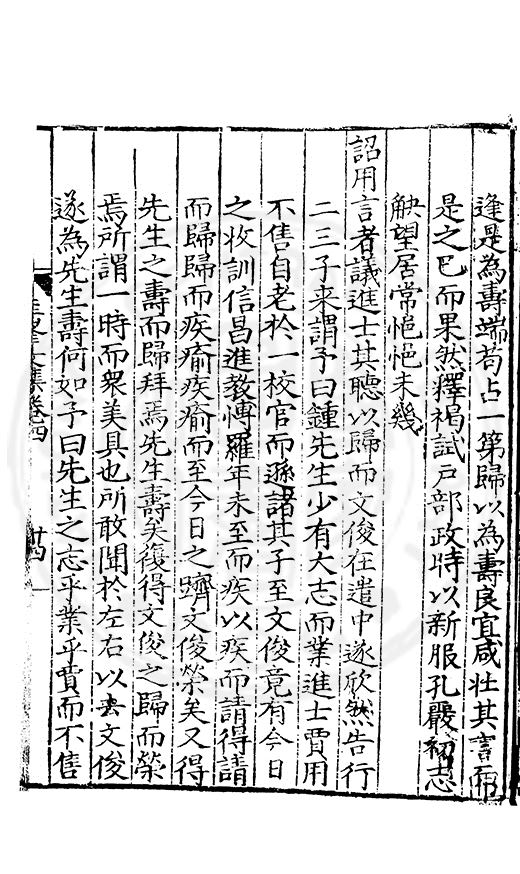 逢是為壽端苟占一第歸以為壽良宜咸壯其言而
是之巳而果然釋褐試戸部政時以新服孔嚴初志
觖望居常悒悒未幾
詔用言者議進士其聽以歸而文俊在遣中遂欣然告行
二三子来謂予曰鍾先生少有大志而業進士賈用
不售自老於一校官而遜諸其子至文俊竟有今日
之收訓信昌進教愽羅年未至而疾以疾而請得請
而歸歸而疾瘉疾瘉而至今日之躋文俊榮矣又得
先生之壽而歸拜焉先生壽矣復得文俊之歸而榮
焉所謂一時而衆美具也所敢聞於左右以去文俊
遂為先生壽何如予曰先生之志乎業乎賈而不售
文集卷四
廿四